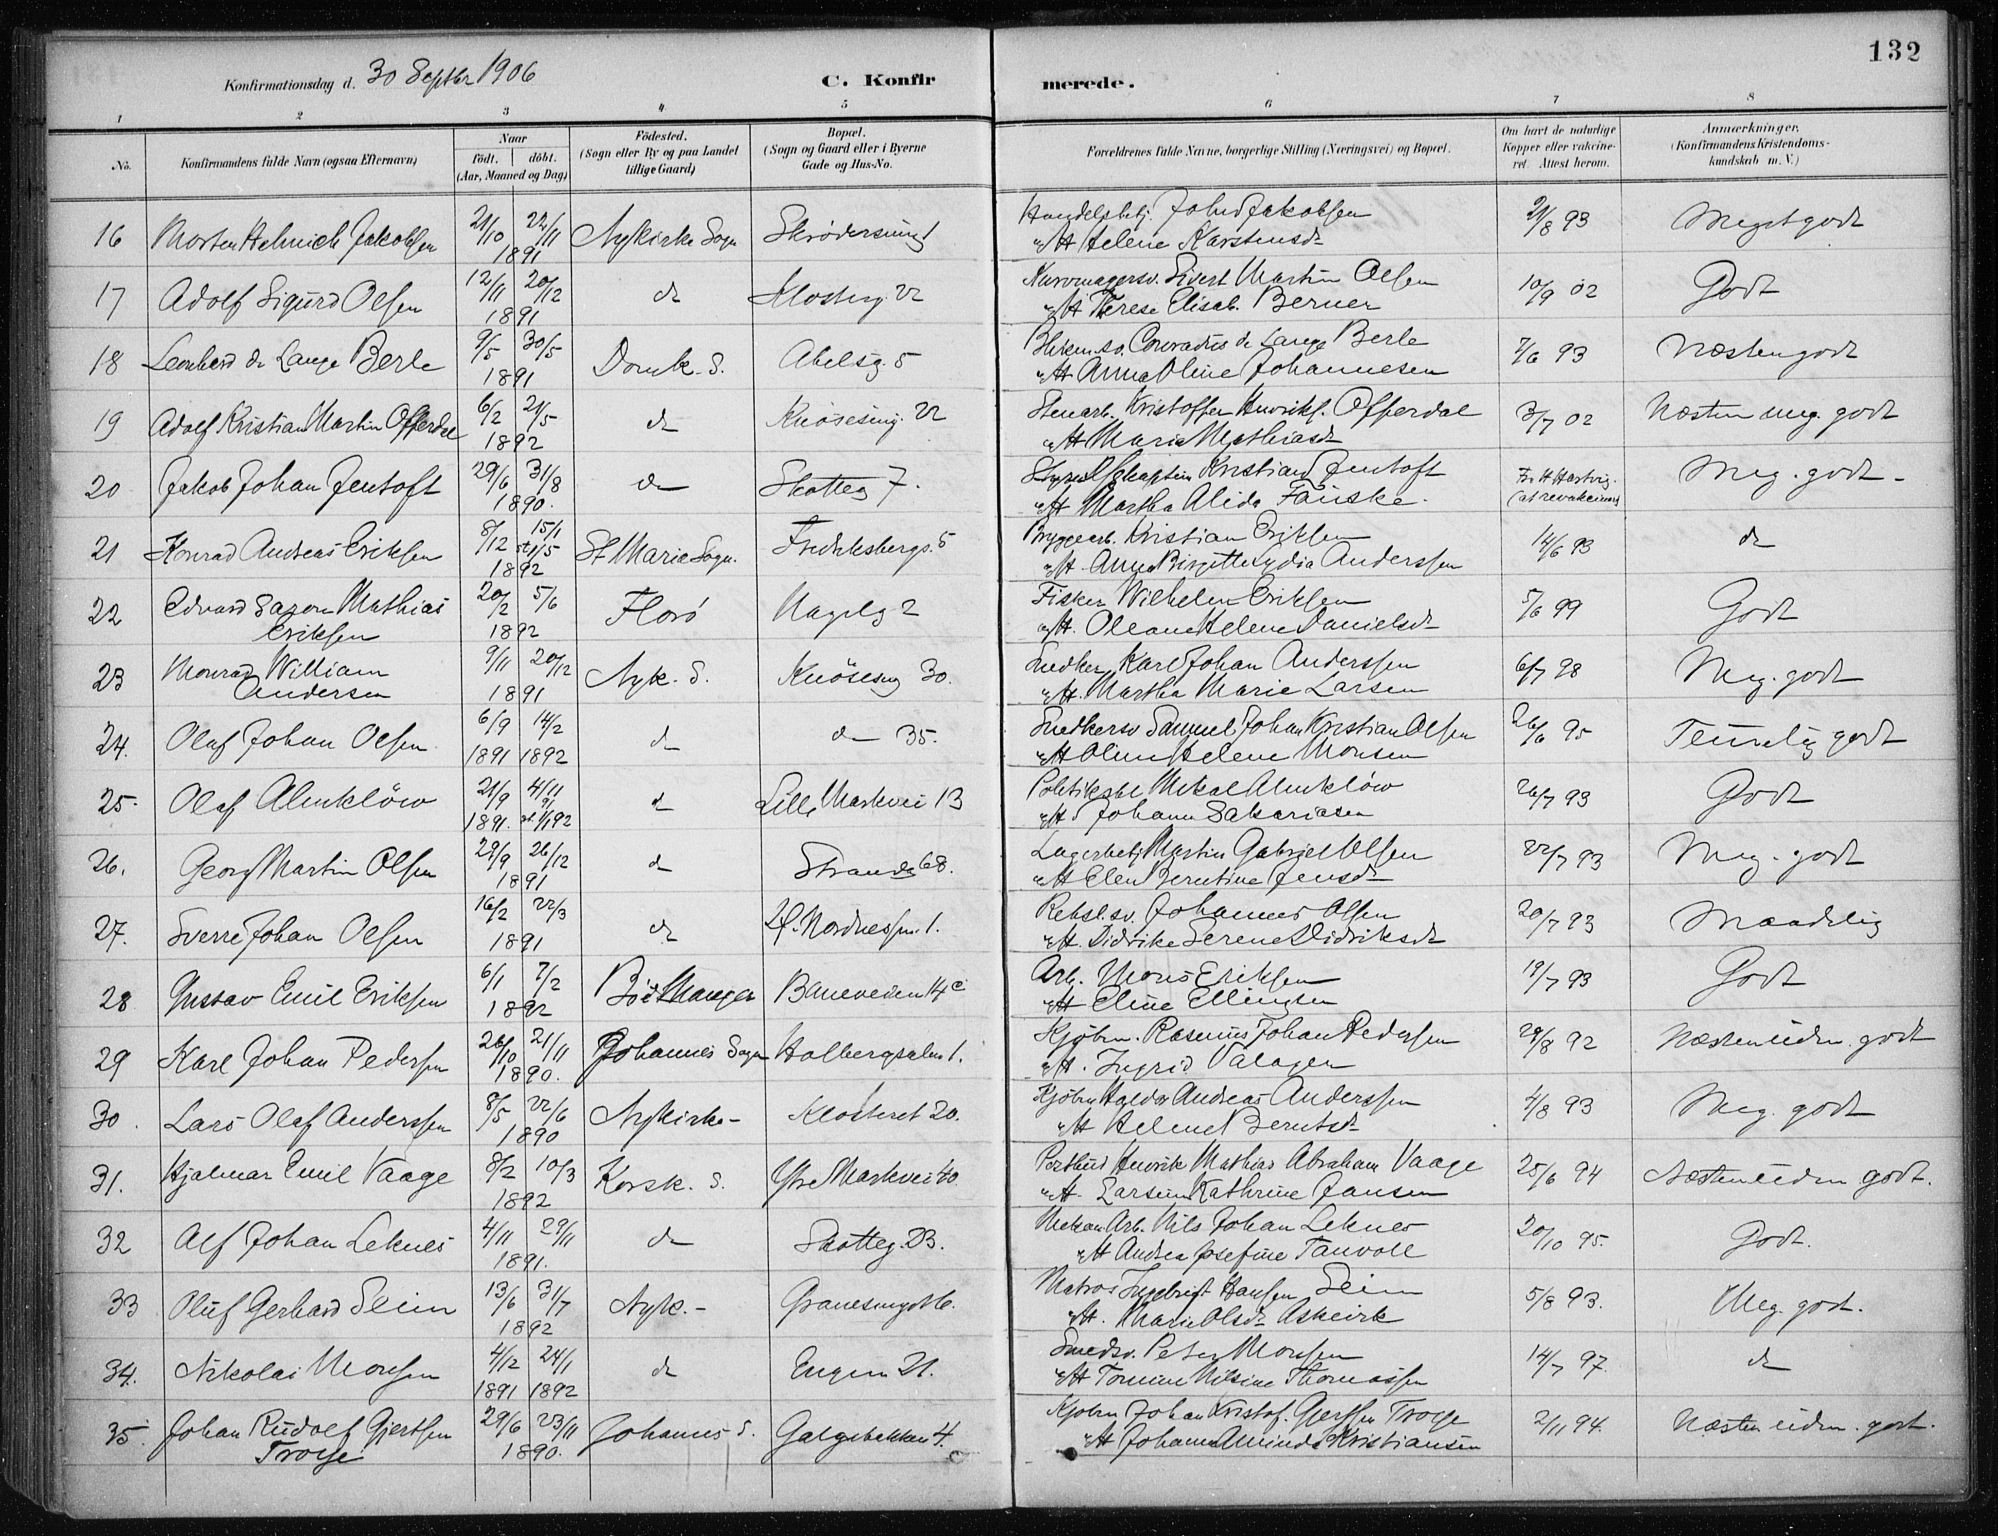 132
Konfirmationsdag d. 30 Septbr 1906
C. Konfirmerede.
1 2 3 4 5 6 7 8
No.
Konfirmandens fulde Navn (ogsaa Efternavn)
Naar
födt. döbt.
(Aar, Maaned og Dag)
Födested.
(Sogn eller By og paa Landet
tillige Gaard)
Bopæl.
(Sogn og Gaard eller i Byerne
Gade og Hus-No.
Forældrenes fulde Navne, borgerlige Stilling (Næringsvei) og Bopæl.
Om havt de naturlige
Kopper eller vakcine-
ret. Attest herom.
Anmærkninger.
(Konfirmandens Kristendoms-
kundskab m. V.)
16 Morten Hehnich Jakobsen 21/10 22/11 Nykirke Sogn Handelsbetj. Johd Jakobsen 21/8 93 Meget godt
1891 Helene Karstensdt
17 Adolf Sigurd Olsen 12/11 20/12 do Klosterg. 22 Kurvmagersv. Sivert Martin Olsen 10/9 02 Godt
1891 Therese Elisab. Berner
18 Leonhard de Lange Berle 9/5 30/5 Domk. S. Abelsg. 5 Conradus de Lange Berle 7/6 93 Næsten godt
1891 Anna Oline Johannesen
19 Adolf Kristian Martin Offerdal 6/2 21/5 do Knösesmg. 22 Stenarb. Kristoffer Henriks. Offerdal 3/7 02 Næsten meg. godt
1892 Marie Mathiasdt
20 Jakob Johan Jentoft 29/6 31/8 do Skotteg 7. Kristian Jentoft Meg. godt
1890. Martha Alida Fauske.
21 Konrad Andreas Eriksen 8/12 15/1 St Marie Sogn. Fredriksbergs. 5 Bryggearb. Kristian Eriksen 14/6 93 do
1892 Anne Birgitte Lydia Anderssen
22 Edvard Mathias 20/2 5/6 Florö Nagelg 2 Fisker Wilhelm Eriksen 5/6 99 Godt
Eriksen 1892 Oleane Helene Danielsdt
23 Monrad William 9/11 20/12 Nyk. S. Knösesmg 30. Snedker Karl Johan Anderssen 6/7 98 Meg. godt
Andersen 1891 Martha Marie Larsen
24. Olaf Johan Olsen 6/9 14/2 do do 35. Snedkersv Samuel Johan Kristian Olsen 26/6 95 Temmelig godt
1891 1892 Helene Monsen
25. Olaf Almklöw 21/9 4/11 do Lille Markvei 13 Mikal Almklöw 26/7 93 Godt
1891. Sakariasen
26. Georg Martin Olsen 29/9 26/12 do Strandg 68. Lagerbetj Martin Gabriel Olsen 22/7 93 Meg. godt
1891 Elen Berntine Jensdt
27. Sverre Johan Olsen 16/2 22/3 do 1. Rebsl.sv. Johannes Olsen 20/7 93 Maadelig
1891 Didrike Serene Didriksdt
28 Gustav Emil Eriksen 6/1 7/2 Manger Baneveien 14 c Arb. Mons Eriksen 19/7 93 Godt
1892 Eline Ellingsen
29 Karl Johan Pedersen 26/10 21/11 Johannes Sogn Holbergsalm 1. Kjöbm. Rasmus Johan Pedersen 29/8 92 Næsten udm. godt
1890. Ingrid Valagen
30. Lars Olaf Anderssen 8/5 22/6 Nykirke- Klosteret 20. Kjöbm Andreas Anderssen 4/8 93 Meg. godt
1890 Helene Berntsdt
31. Hjalmar Emil Vaage 8/2 10/3 Korsk. S. Ytre Markvei 40. Henrik Mathias Abraham Vaage 25/6 94 Næsten udm godt.
1892 Kathrine Jansen
32 Alf Johan Leknes 4/11 29/11 do Skotteg. 23. Mekan Arb. Nils Johan Leknes 20/10 95. Godt.
1891. Andrea Josefine Tanvoll
33 Oluf Gerhard Seim 13/6 31/7 Nyk.- Matros Ingebrigt Hansen Seim 5/8 93. Meg. godt.
1892 Marie Olsdt Askvik
34. Nikolai Monsen 4/12 24/1 do Engen 21. Smedsv. Peter Monsen 14/7 97. do
1891 1892 Nilsine Thomassen
35. Johan Rudolf Gjertsen 29/6 23/11 Johannes S. Galgebakken 4. Kjöbm Johan Kristof. Gjertsen Troye 2/11 94. Næsten udm. godt.
Troye 1890. Kristiansen